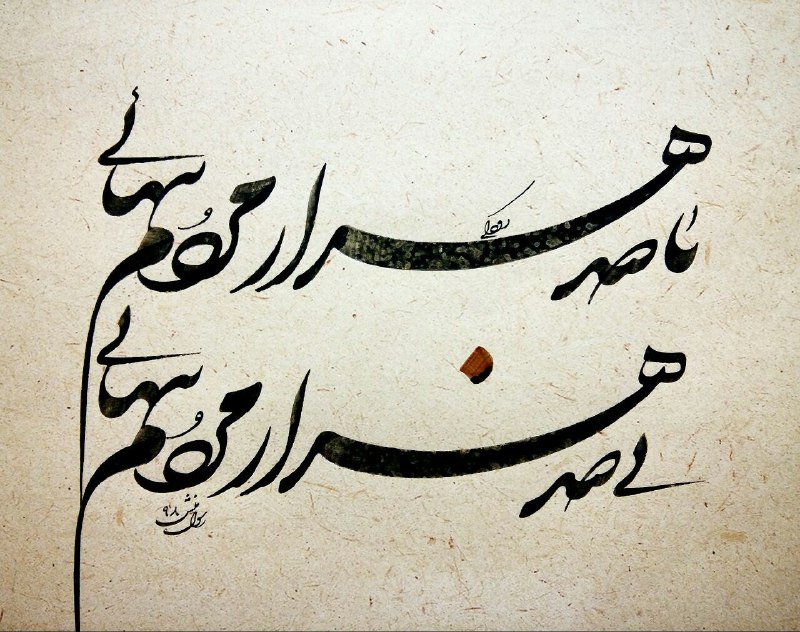 با صد هزار مردم تنهایی
رودکی
بی صد هزار مردم تنهایی
رسول ۹۸